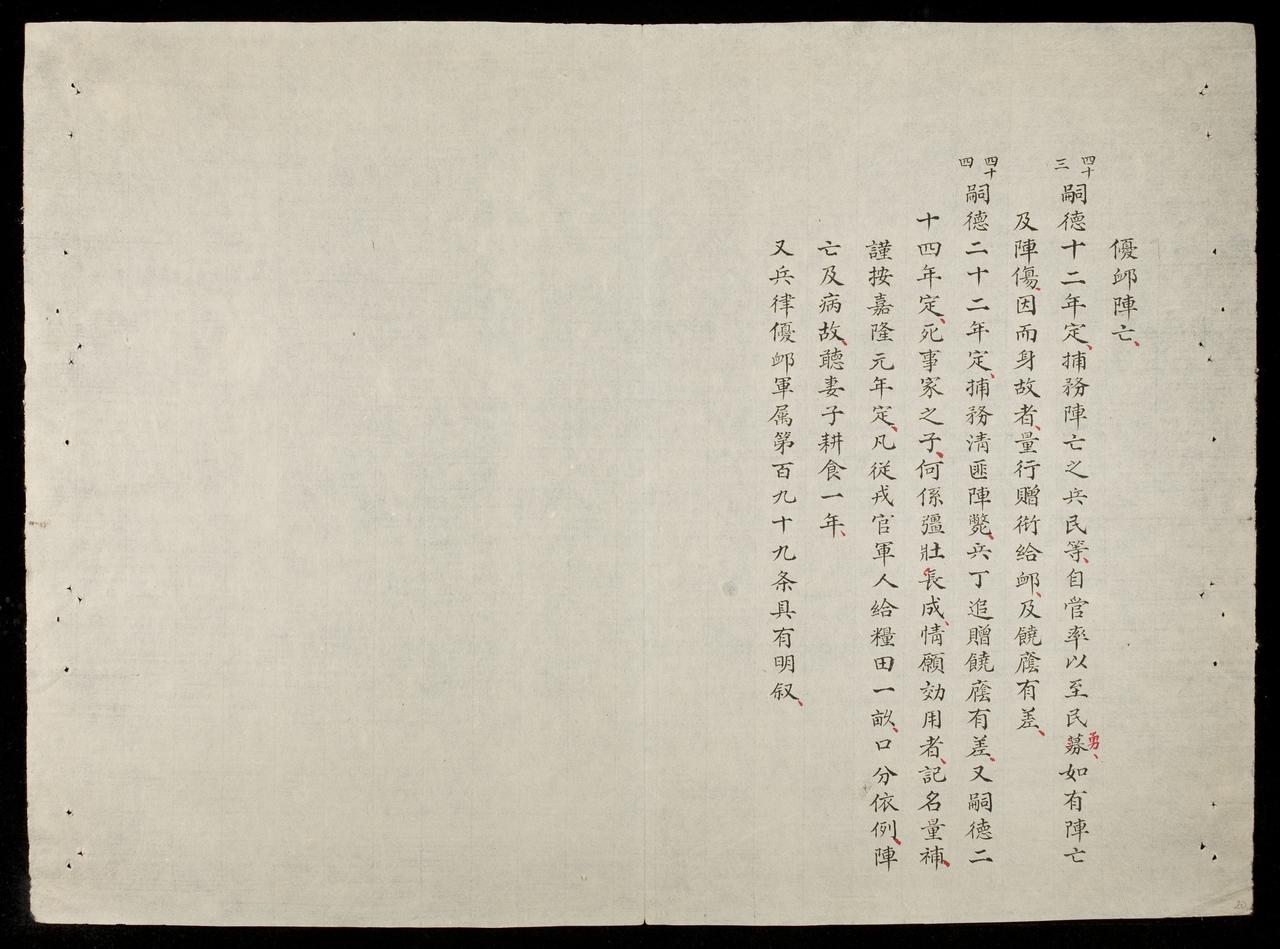 優邺陣亡、
四十三
嗣德十二年定、捕務陣亡之兵民等、自官率以至民募勇、如有陣亡
及陣傷、因而身故者、量行贈銜給邺、及饒廕有差、
四十四
嗣德二十二年定、捕務清匪陣斃、兵丁追贈饒廕有差、又嗣德二
十四年定、死事家之子、何係彊壯長成、情願効用者、記名量補、
謹按嘉隆元年定、凡從戎官軍人給糧田一畝、口分依例、陣
亡及病故、聽妻子耕食一年、
又兵律優邺軍属第百九十九条具有明叙、
20